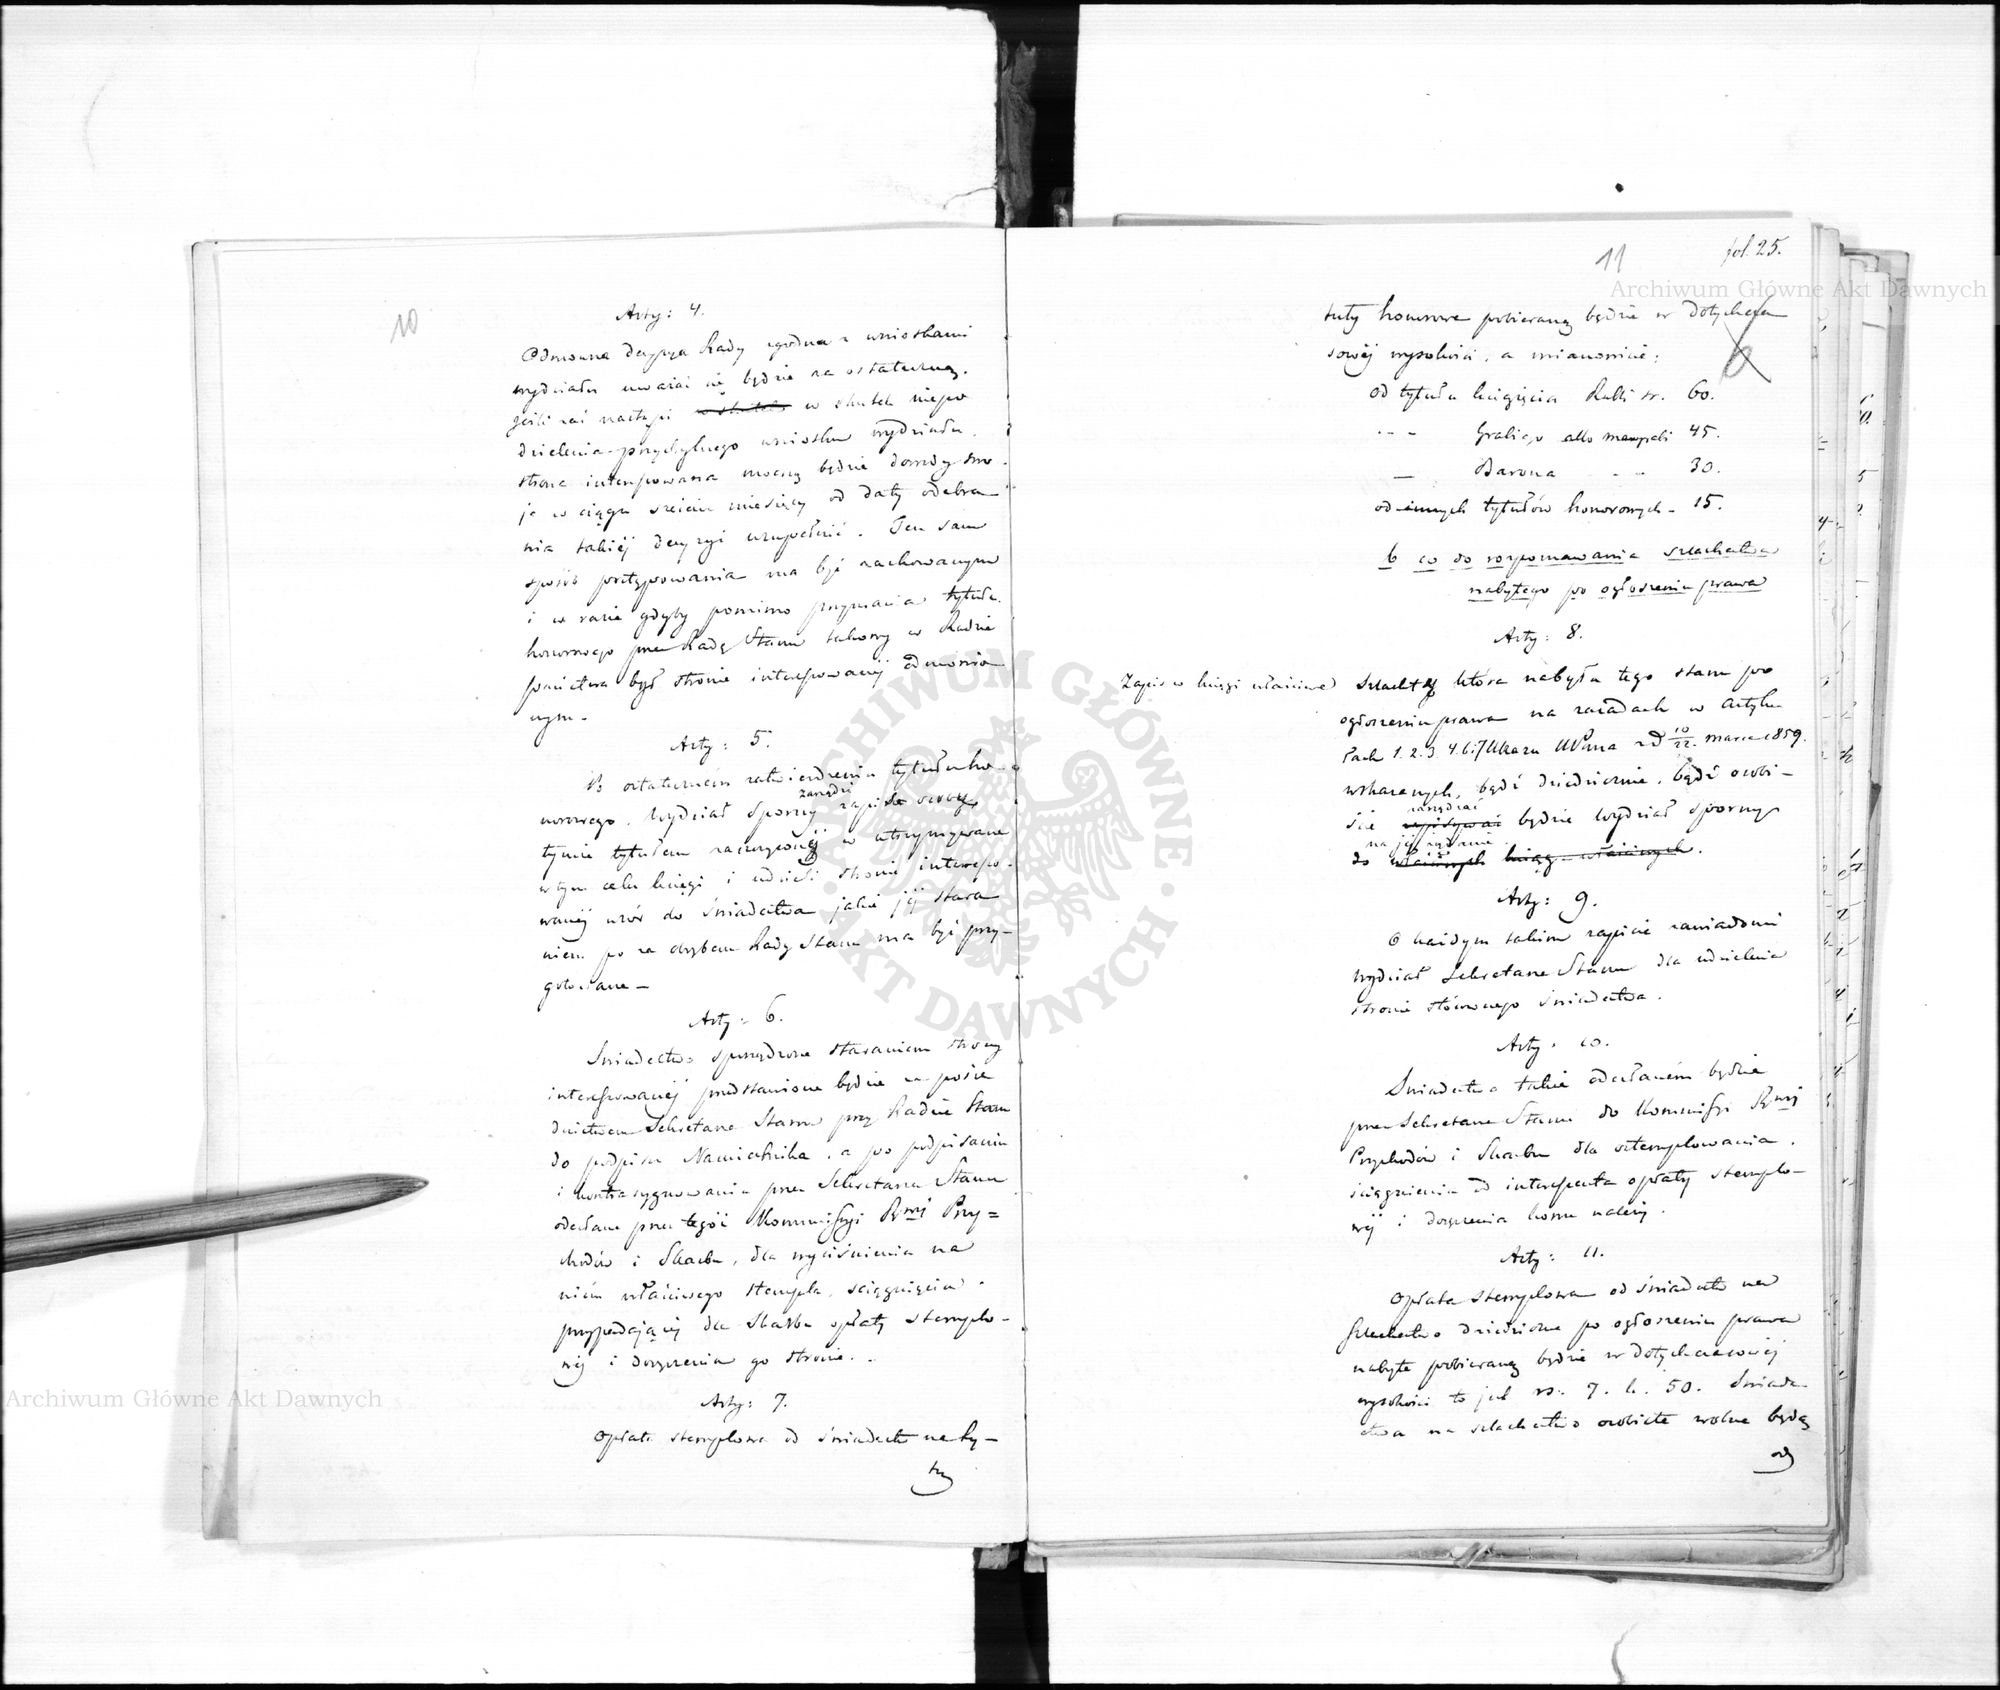 10
Arty: 4.
Odmowna decyzya Rady zgodna z wnioskami
wydziału uważać się będzie za ostateczną.
jeśli zaś nastąpi w skutek niepo
dzielenia przychylnego wniosku wydziału,
strona interesowana mocną będzie dowody swo
je w ciągu sześciu miesięcy od daty odebra
nia takiéj decyzyi uzupełnić. Ten sam
sposób postępowania ma być zachowanym
i w razie gdyby pomimo przyznania tytułu
honorowego przez Radę Stanu takowy w Radzie
był stronie interesowanéj odmówio
nym.
Arty: 5.
Po ostateczném zatwierdzeniu tytułu ho-
norowego, Wydział Sporny zarządzi zapis osoby
tymże tytułem zaszczyconéj w utrzymywane
w tym celu księgi i udzieli stronie intereso-
wanéj wzór do świadectwa jakie jéj stara
niem po za obrębem Rady Stanu ma być przy-
gotowane —
Arty: 6.
Świadectwo sporządzone staraniem strony
interesowanéj przedstawione będzie za pośre
dnictwem Sekretarza Stanu przy Radzie Stanu
do podpisu Namiestnika, a po podpisaniu
i kontrasygnowaniu przez Sekretarza Stanu
odesłane przez tegoż Kommissyi Rwéj Przy=
chodów i Skarbu, dla wyciśnienia na
niém właściwego stempla, ściągnięcia
przypadającéj dla Skarbu opłaty stemplo-
wéj i doręczenia go stronie.
Arty: 7.
Opłata stemplowa od świadectw na ty-
tuły
11
fol. 25.
tuły honorowe pobieraną będzie w dotychcza
sowéj wysokości, a mianowicie:
Od tytułu książęcia Rubli sr. 60.
- - Grabiego albo margrabi 45.
— Barona - - 30.
od innych tytułów honorowych - 15.
b co do rozpoznawania szlachectwa
nabytego po ogłoszeniu prawa
Arty: 8.
Zapis w księgi właściwe szlachty która nabyła tego stanu po
ogłoszeniu prawa na zasadach w artyku
łach 1. 2. 3. 4. 6 i 7 Ukazu z d 10/22. marca 1859.
wskazanych, bądź dziedzicznie, bądź osobi-
ście zarządzać zapisywać będzie wydział sporny
na jéj żądanie
do właściwych ksiąg właściwych.
Arty: 9.
O każdym takim zapisie zawiadomi
wydział Sekretarza Stanu dla udzielenia
stronie stósownego świadectwa.
Arty. 10.
Świadectwo takie odesłaném będzie
przez Sekretarza Stanu do Kommissyi Rwéj
Przychodów i Skarbu dla ostemplowania,
ściągnienia od interesenta opłaty stemplo-
wéj i doręczenia komu należy.
Arty: 11.
Opłata stemplowa od świadectw na
szlachectwo dziedziczne po ogłoszeniu prawa
nabyte pobieraną będzie w dotychczasowéj
wysokości to jest rs. 7. k. 50. Świade
ctwa na szlachectwo osobiste wolne będą
od
Archiwum Główne Akt Dawnych
Archiwum Główne Akt Dawnych
ARCHIWUM GŁÓWNE
AKT DAWNYCH